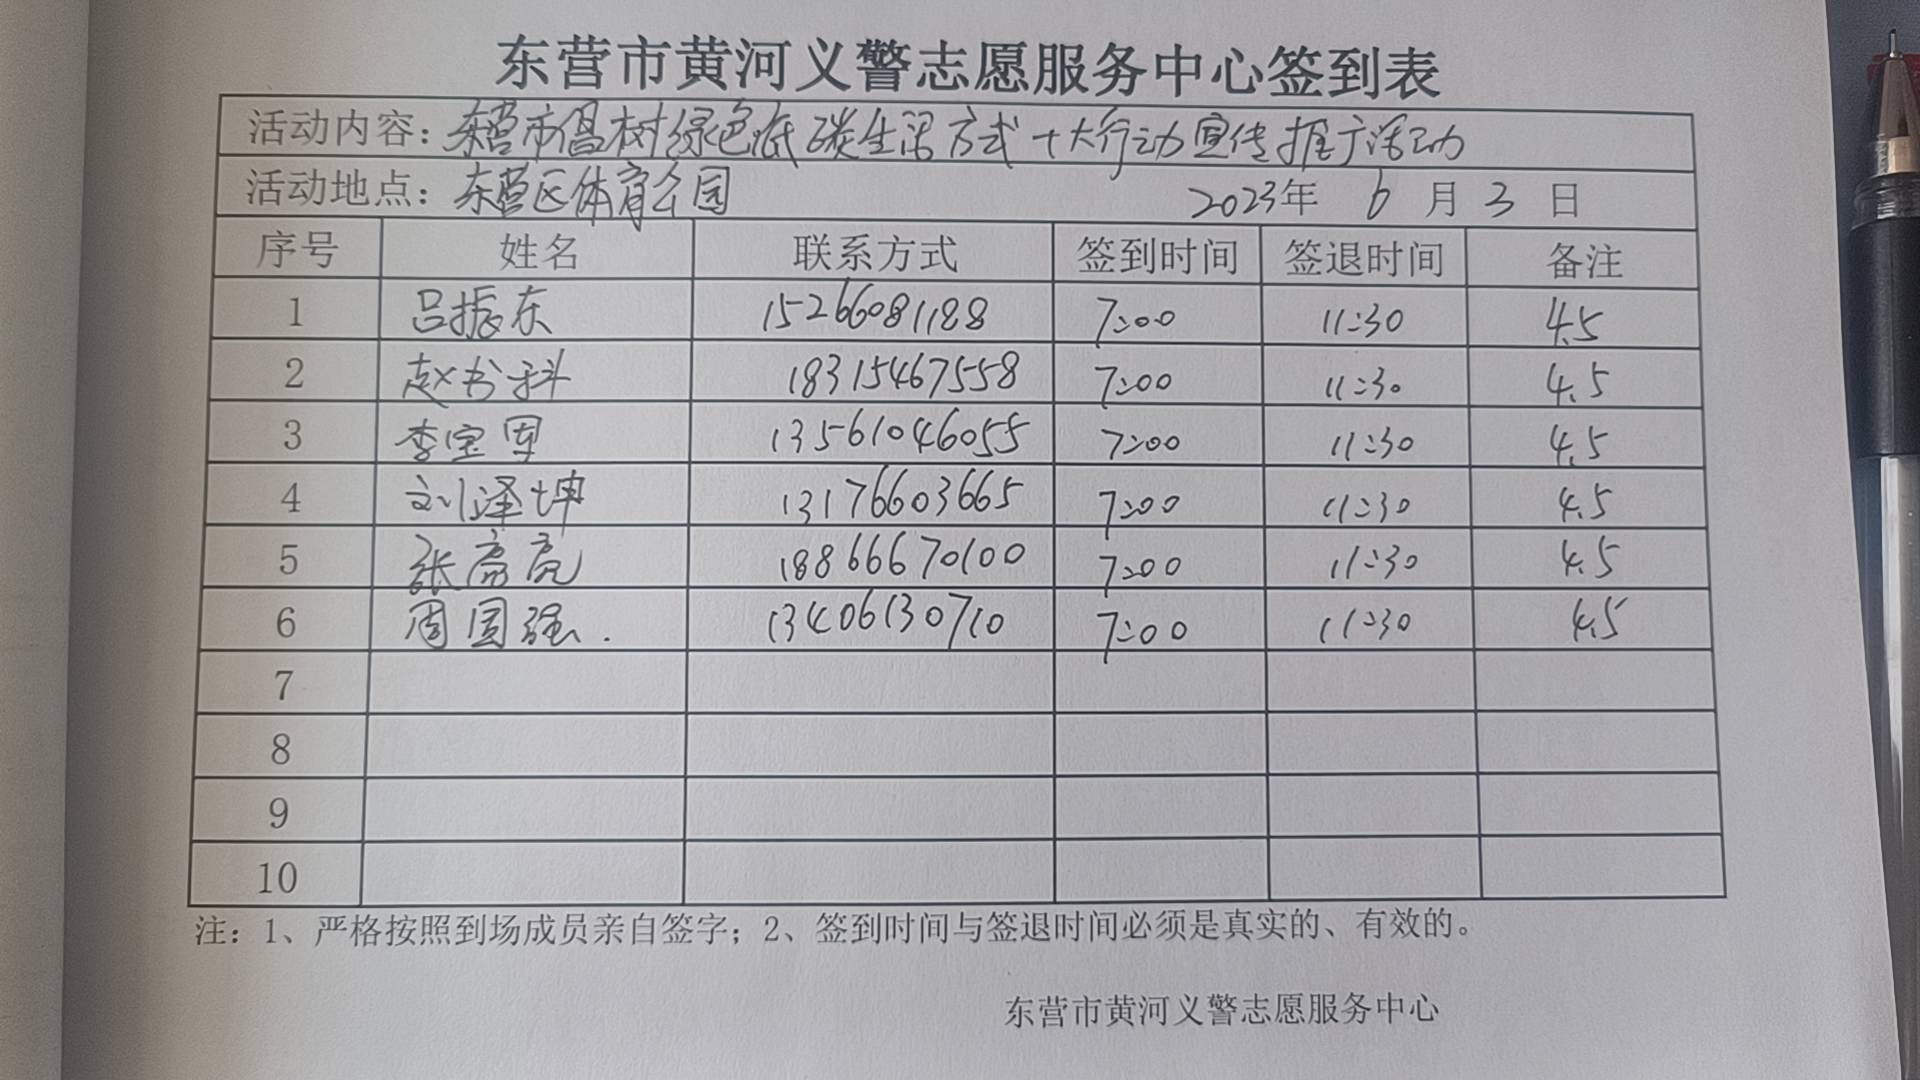 东营市黄河义警志愿服务中心签到表
活动内容：东营市倡树绿色低碳生活方式十大行动宣传推广活动
活动地点：东营区体育公园 2023年 6 月 3 日
序号 姓名 联系方式 签到时间 签退时间 备注
1 吕振东 15266081188 7:00 11:30 4.5
2 赵书科 18315467558 7:00 11:30 4.5
3 李宝军 13561046055 7:00 11:30 4.5
4 刘泽坤 13176603665 7:00 11:30 4.5
5 张亮 18866670100 7:00 11:30 4.5
6 周圆强. 13406130710 7:00 11:30 4.5
7
8
9
10
注：1、严格按照到场成员亲自签字；2、签到时间与签退时间必须是真实的、有效的。
东营市黄河义警志愿服务中心